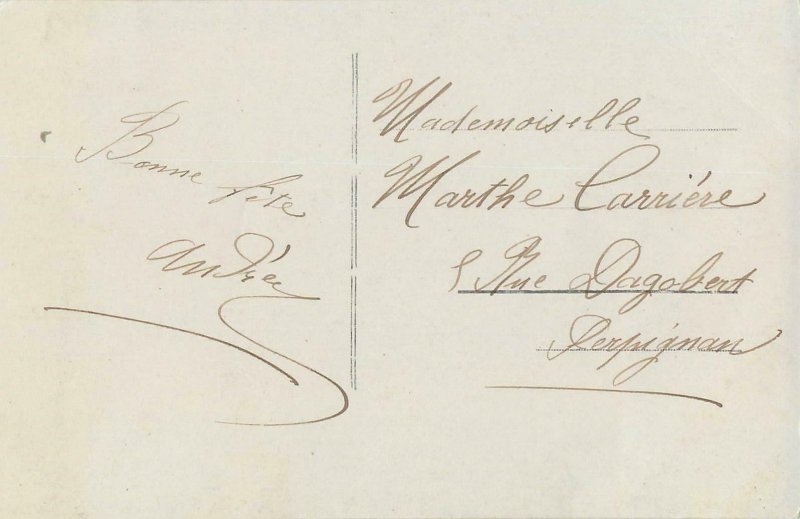 Bonne fête
Andrée
Mademoiselle
Marthe Carrière
Rue Dagobert
Perpignan